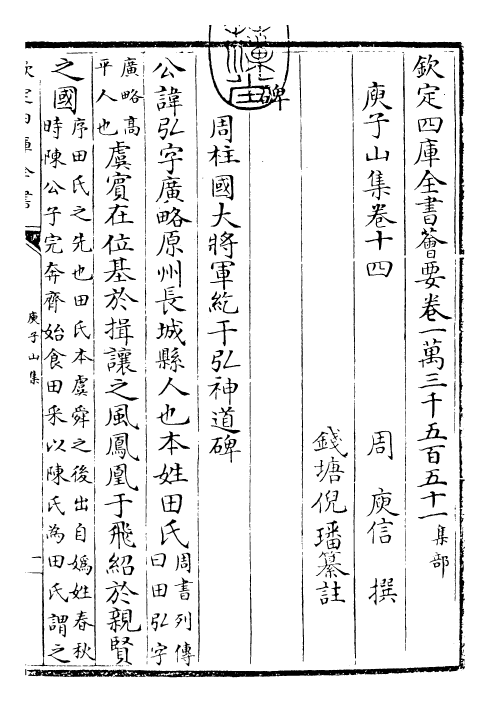 欽定四庫全書薈要卷一萬三千五百五十一集部
庾子山集卷十四
周 庾信 撰
錢塘倪璠纂註
碑
周柱國大將軍紇干弘神道碑
公諱弘字廣略原州長城縣人也本姓田氏周書列傳曰田弘字
廣略高平人也虞賓在位基於揖讓之風鳳凰于飛紹於親賢
之國序田氏之先也田氏本虞舜之後出自媯姓春秋時陳公子完奔齊始食田采以陳氏為田氏謂之
欽定四庫全書
庾子山集
一